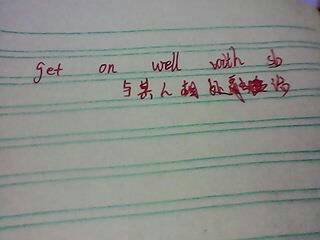 get on well with sb
与某人相处